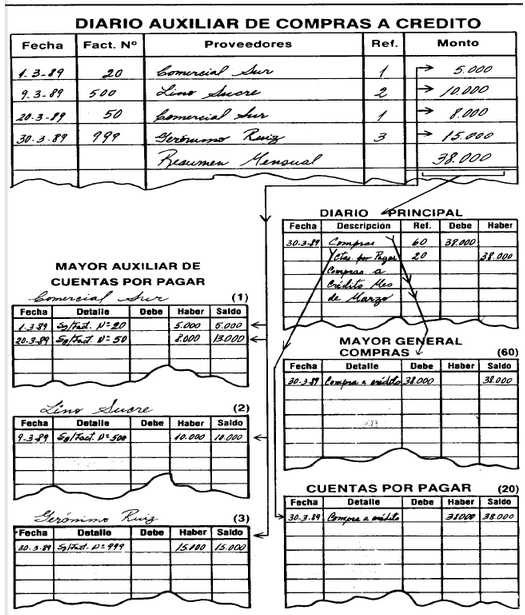 DIARIO AUXILIAR DE COMPRAS A CREDITO
Fecha Fact. Nº Proveedores Ref. Monto
1.3-89 20 Comercial Sur 1 5.000
9.3-89 500 Lino Sucre 2 10.000
20.3-89 50 Comercial Sur 1 8.000
30.3.89 999 Gerónimo Ruiz 3 15.000
Resumen Mensual 38.000
DIARIO PRINCIPAL
Fecha Descripción Ref. Debe Haber
30-3-89 Compras 60 38.000
Ctas por Pagar 20 38.000
Compras a
Crédito Mes
de Marzo
MAYOR AUXILIAR DE
CUENTAS POR PAGAR
Comercial Sur (1)
Fecha Detalle Debe Haber Saldo
1.3-89 Sg/Fact. Nº 20 5.000 5.000
20-3-89 Sg/Fact. Nº 50 8.000 13.000
MAYOR GENERAL
COMPRAS (60)
Fecha Detalle Debe Haber Saldo
30-3-89 Compra a crédito 38.000 38.000
Lino Sucre (2)
Fecha Detalle Debe Haber Saldo
9-3-89 Sg/Fact. Nº 500 10.000 10.000
CUENTAS POR PAGAR (20)
Fecha Detalle Debe Haber Saldo
30-3-89 Compra a crédito 38000 38.000
Gerónimo Ruiz (3)
Fecha Detalle Debe Haber Saldo
30-3-89 Sg/Fact. Nº 999 15.000 15.000